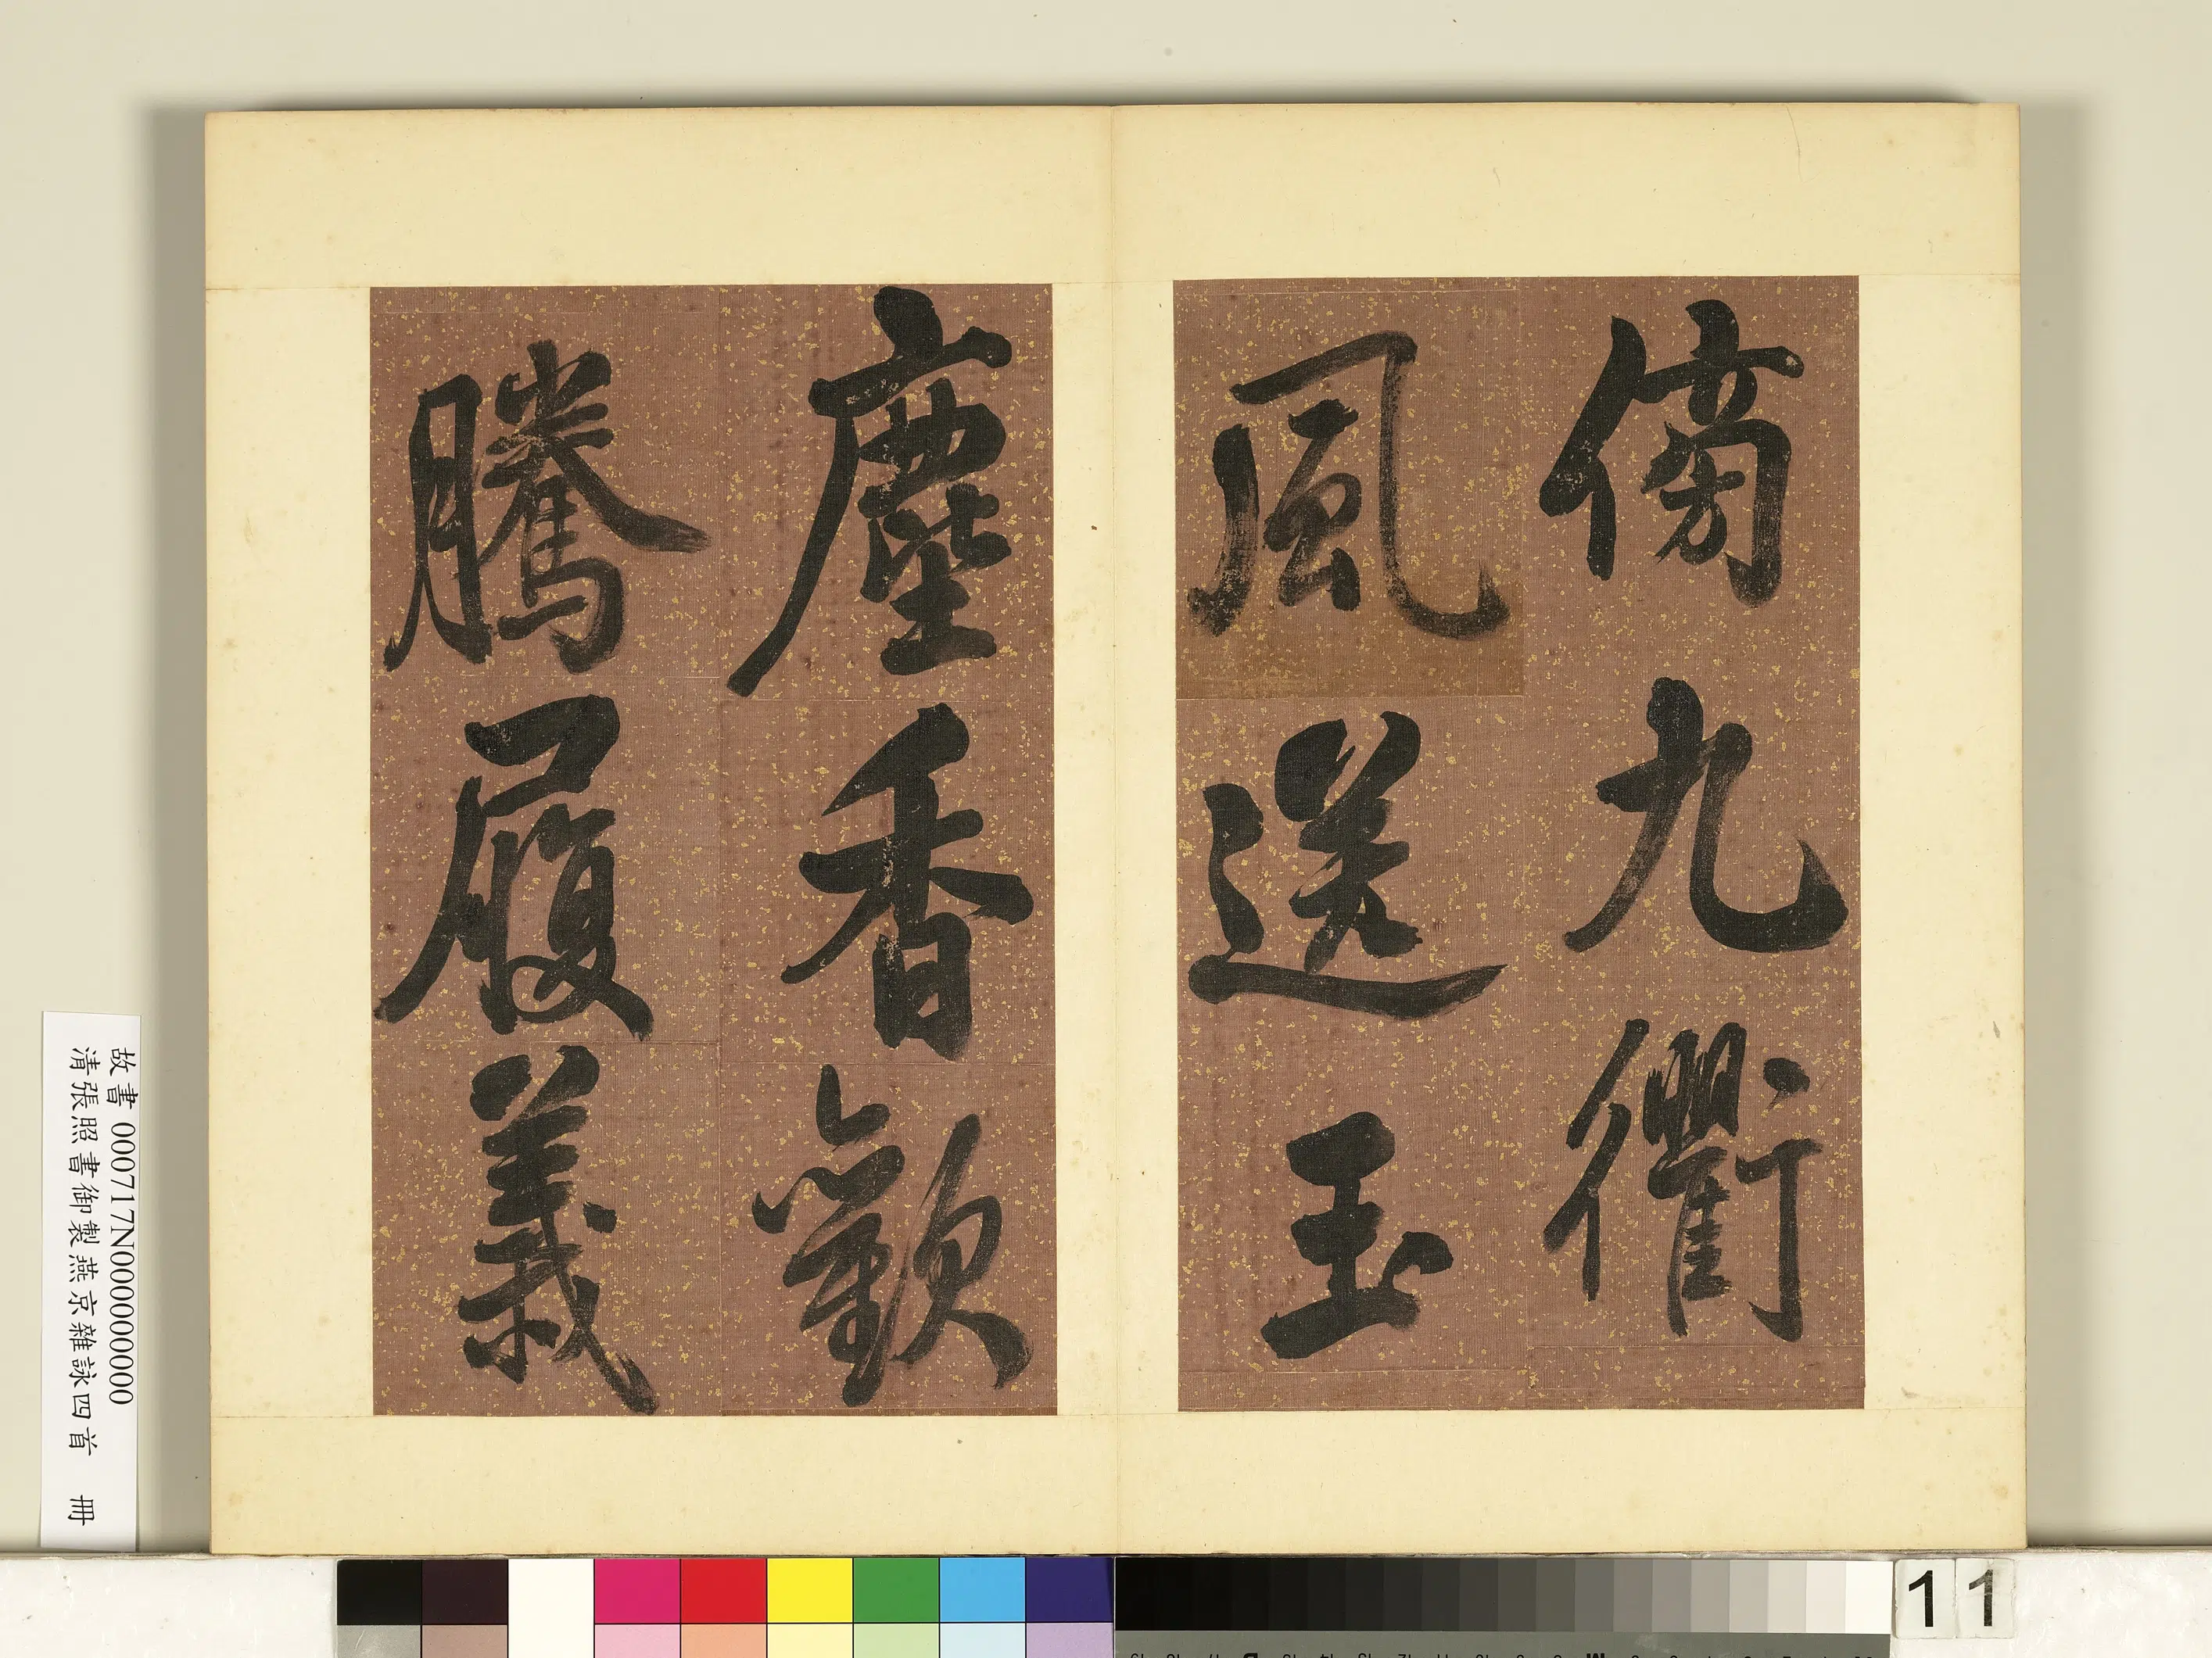 傍九衢
風送玉
塵香歡
騰履義
故書 000717N000000000
清張照書御製燕京雜詠四首 冊
11